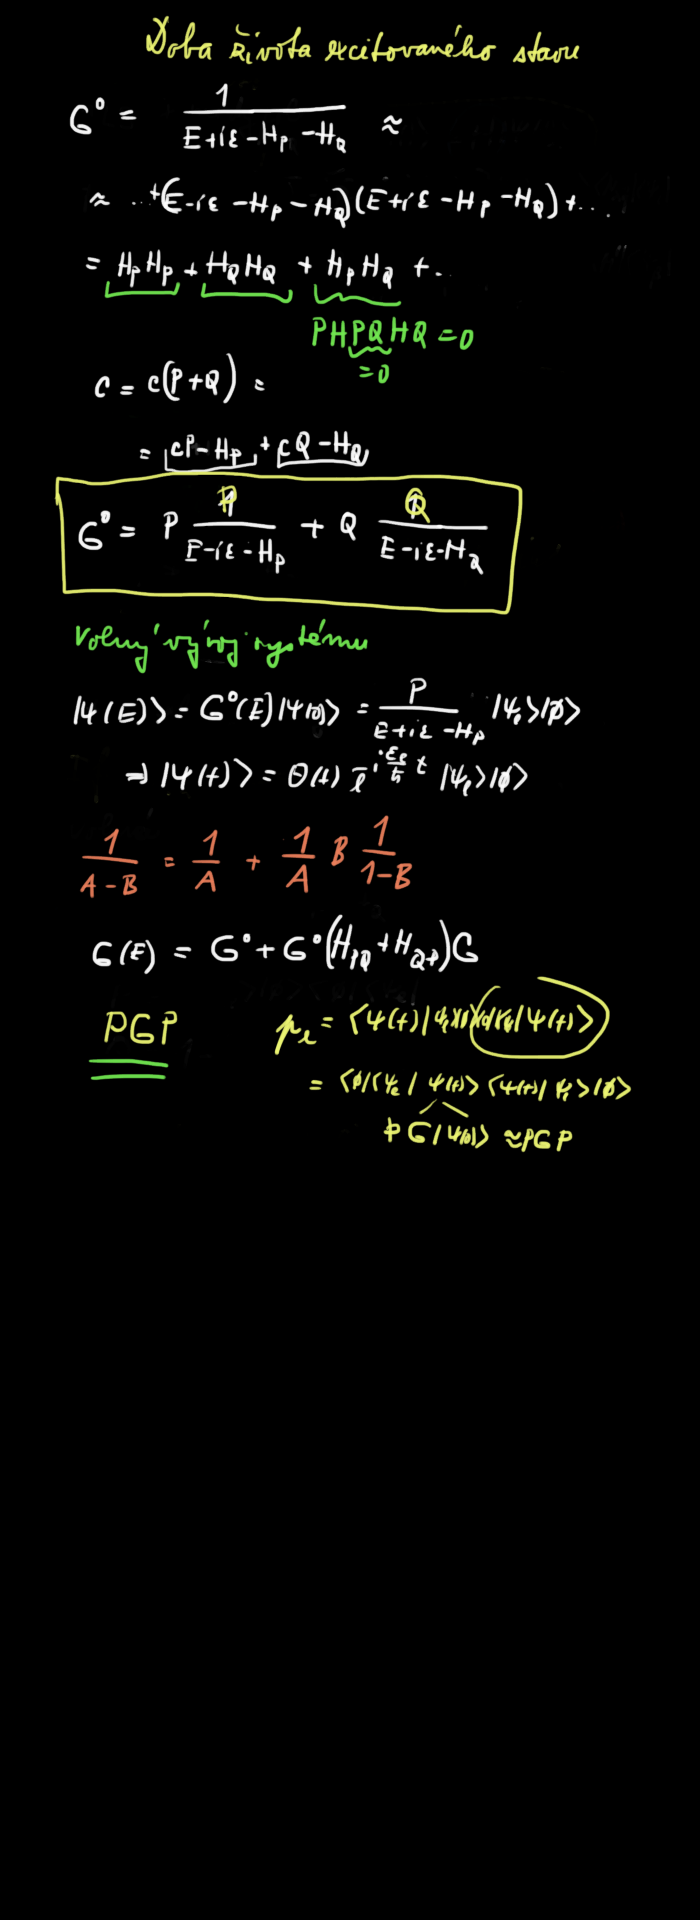 Doba života excitovaného stavu
G⁰ = 1 / (E+iε-H_P-H_Q) ≈
≈ ...+(E-iε-H_P-H_Q)(E+iε-H_P-H_Q)+...
= H_P H_P + H_Q H_Q + H_P H_Q + ..
PHPQHQ = 0
= 0
C = C(P+Q) =
= CP-H_P + CQ-H_Q
G⁰ = P P / (E-iε-H_P) + Q Q / (E-iε-H_Q)
Volný vývoj systému
|ψ(E)⟩ = G⁰(E)|ψ(0)⟩ = P / (E+iε-H_P) |ψ_e⟩|ø⟩
⇒ |ψ(t)⟩ = Θ(t) e^{-i ε_e/ħ t} |ψ_e⟩|ø⟩
1 / (A-B) = 1/A + 1/A B 1 / (1-B)
G(E) = G⁰ + G⁰(H_PQ + H_QP)G
PGP
p_e = ⟨ψ(t)|ψ_e⟩|ø⟩⟨ø|⟨ψ_e|ψ(t)⟩
= ⟨ø|⟨ψ_e|ψ(t)⟩⟨ψ(t)|ψ_e⟩|ø⟩
PG|ψ(0)⟩ ≈ PGP